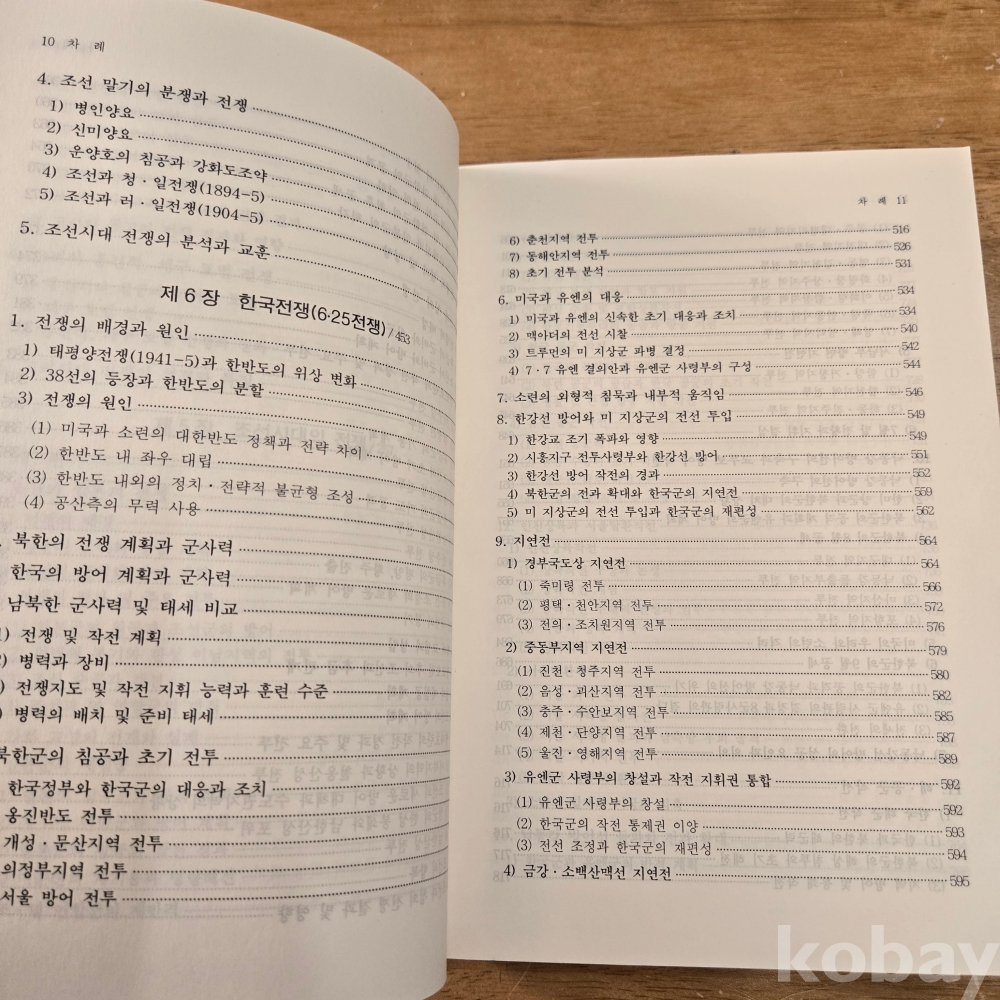 10 차 례
4. 조선 말기의 분쟁과 전쟁
1) 병인양요
2) 신미양요
3) 운양호의 침공과 강화도조약
4) 조선과 청·일전쟁(1894-5)
5) 조선과 러·일전쟁(1904-5)
5. 조선시대 전쟁의 분석과 교훈
제 6 장 한국전쟁(6·25전쟁) / 453
1. 전쟁의 배경과 원인
1) 태평양전쟁(1941-5)과 한반도의 위상 변화
2) 38선의 등장과 한반도의 분할
3) 전쟁의 원인
(1) 미국과 소련의 대한반도 정책과 전략 차이
(2) 한반도 내 좌우 대립
(3) 한반도 내외의 정치·전략적 불균형 조성
(4) 공산측의 무력 사용
북한의 전쟁 계획과 군사력
한국의 방어 계획과 군사력
남북한 군사력 및 태세 비교
1) 전쟁 및 작전 계획
2) 병력과 장비
) 전쟁지도 및 작전 지휘 능력과 훈련 수준
) 병력의 배치 및 준비 태세
북한군의 침공과 초기 전투
한국정부와 한국군의 대응과 조치
옹진반도 전투
개성·문산지역 전투
의정부지역 전투
서울 방어 전투
차 례 11
6) 춘천지역 전투 516
7) 동해안지역 전투 526
8) 초기 전투 분석 531
6. 미국과 유엔의 대응 534
1) 미국과 유엔의 신속한 초기 대응과 조치 534
2) 맥아더의 전선 시찰 540
3) 트루먼의 미 지상군 파병 결정 542
4) 7·7 유엔 결의안과 유엔군 사령부의 구성 544
7. 소련의 외형적 침묵과 내부적 움직임 546
8. 한강선 방어와 미 지상군의 전선 투입 549
1) 한강교 조기 폭파와 영향 549
2) 시흥지구 전투사령부와 한강선 방어 551
3) 한강선 방어 작전의 경과 552
4) 북한군의 전과 확대와 한국군의 지연전 559
5) 미 지상군의 전선 투입과 한국군의 재편성 562
9. 지연전 564
1) 경부국도상 지연전 564
(1) 죽미령 전투 566
(2) 평택·천안지역 전투 572
(3) 전의·조치원지역 전투 576
2) 중동부지역 지연전 579
(1) 진천·청주지역 전투 580
(2) 음성·괴산지역 전투 582
(3) 충주·수안보지역 전투 585
(4) 제천·단양지역 전투 587
(5) 울진·영해지역 전투 589
3) 유엔군 사령부의 창설과 작전 지휘권 통합 592
(1) 유엔군 사령부의 창설 592
(2) 한국군의 작전 통제권 이양 593
(3) 전선 조정과 한국군의 재편성 594
4) 금강·소백산맥선 지연전 595
kobay